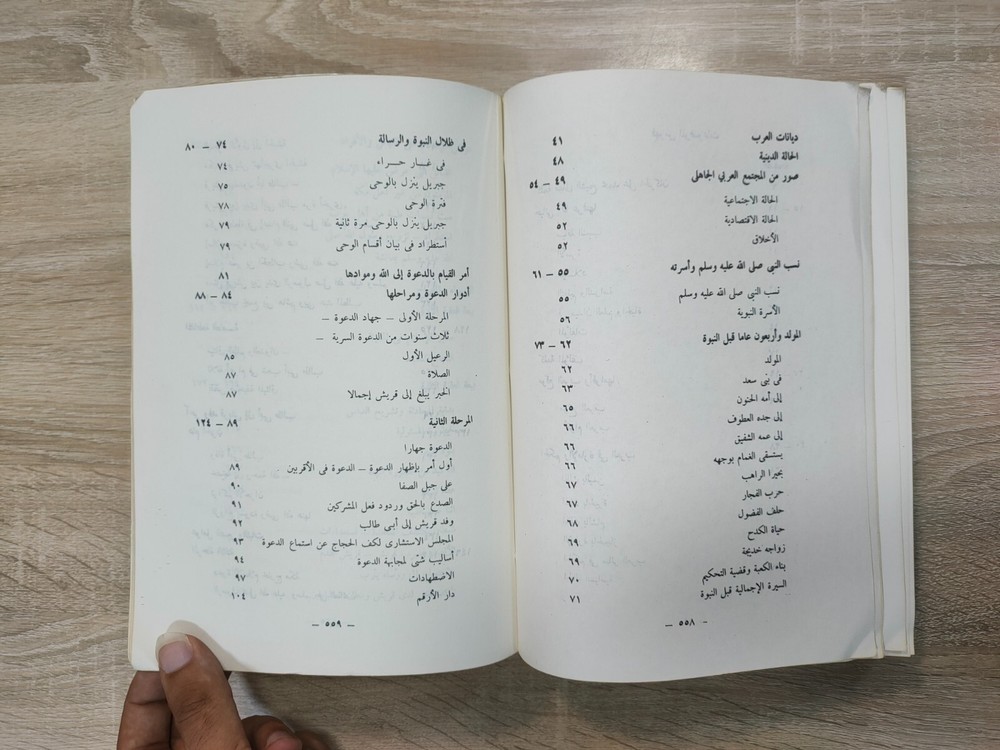 ديانات العرب ٤١
الحالة الدينية ٤٨
صور من المجتمع العربي الجاهلى ٤٩ – ٥٤
الحالة الاجتماعية ٤٩
الحالة الاقتصادية ٥٢
الأخلاق ٥٢
نسب النبى صلى الله عليه وسلم وأسرته ٥٥ – ٦١
نسب النبى صلى الله عليه وسلم ٥٥
الأسرة النبوية ٥٦
المولد وأربعون عاما قبل النبوة ٦٢ – ٧٣
المولد ٦٢
فى بنى سعد ٦٣
إلى أمه الحنون ٦٥
إلى جده العطوف ٦٦
إلى عمه الشفيق ٦٦
يستسقى الغمام بوجهه ٦٦
بحيرا الراهب ٦٧
حرب الفجار ٦٧
حلف الفضول ٦٨
حياة الكدح ٦٩
زواجه خديجة ٦٩
بناء الكعبة وقضية التحكيم ٧٠
السيرة الإجمالية قبل النبوة ٧١
– ٥٥٨ –
فى ظلال النبوة والرسالة ٧٤ – ٨٠
فى غـار حـراء ٧٤
جبريل ينزل بالوحى ٧٥
فترة الوحى ٧٨
جبريل ينزل بالوحى مرة ثانية ٧٩
أستطراد فى بيان أقسام الوحى ٧٩
أمر القيام بالدعوة إلى الله وموادها ٨١
أدوار الدعوة ومراحلها ٨٤ – ٨٨
المرحلة الأولى – جهاد الدعوة –
ثلاث سنوات من الدعوة السرية –
الرعيل الأول ٨٥
الصلاة ٨٧
الخبر يبلغ إلى قريش إجمالا ٨٧
المرحلة الثانية ٨٩ – ١٢٤
الدعوة جهارا
أول أمر بإظهار الدعوة – الدعوة فى الأقربين ٨٩
على جبل الصفا ٩٠
الصدع بالحق وردود فعل المشركين ٩١
وفد قريش إلى أبى طالب ٩٢
المجلس الاستشارى لكف الحجاج عن استماع الدعوة ٩٣
أساليب شتى لمجابهة الدعوة ٩٤
الاضطهادات ٩٧
دار الأرقم ١٠٤
– ٥٥٩ –